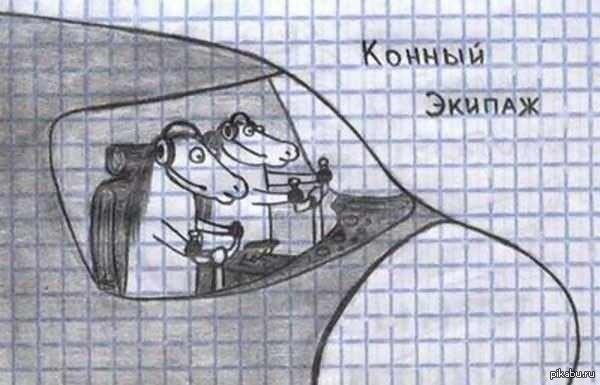 Конный
Экипаж
pikabu.ru